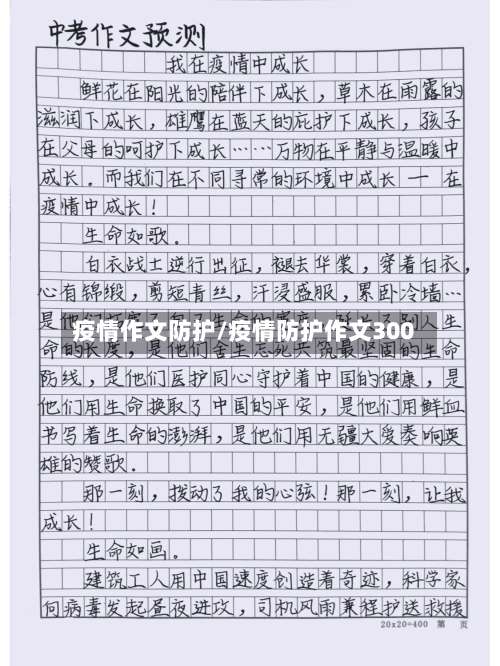 中考作文预测
我在疫情中成长
鲜花在阳光的陪伴下成长，草木在雨露的
滋润下成长，雄鹰在蓝天的庇护下成长，孩子
在父母的呵护下成长……万物在平静与温暖中
成长。而我们在不同寻常的环境中成长——在
疫情中成长！
生命如歌。
白衣战士逆行出征，褪去华裳，穿着白衣，
心有锦缎，剪短青丝，汗浸盛服，累卧冷墙…
疫情作文防护/疫情防护作文300
命的长度，是他们舍生忘死共筑最坚固的生命
防线，是他们医护同心守护着中国的健康，是
他们用生命换取了中国的平安，是他们用鲜血
书写着生命的澎湃，是他们用无疆大爱奏响英
雄的赞歌.
那一刻，拨动了我的心弦！那一刻，让我
成长！
生命如画。
建筑工人用中国速度创造着奇迹，科学家
向病毒发起昼夜进攻，司机风雨兼程护送救援
20x20=400 第 页